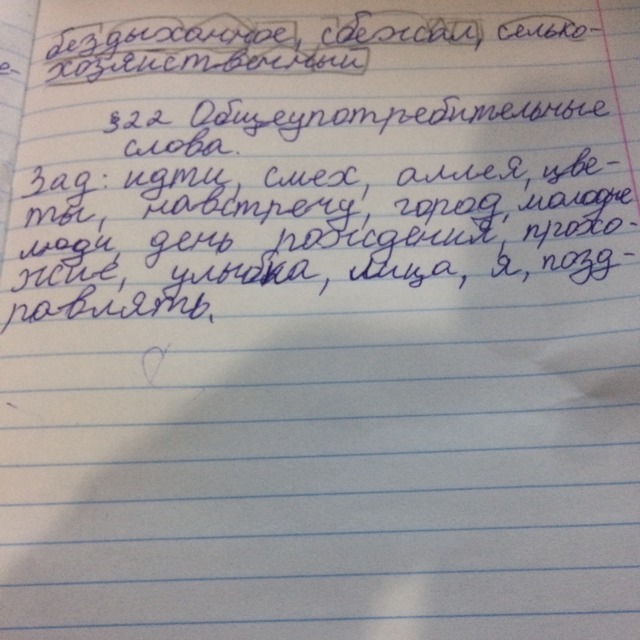 бездыханное, сбежал, сельско-
хозяйственный
§22 Общеупотребительные
слова.
Зад: идти, смех, аллея, цве-
ты, навстречу, город, молодые
люди, день рождения, прохо-
жие, улыбка, лица, я, позд-
равлять,